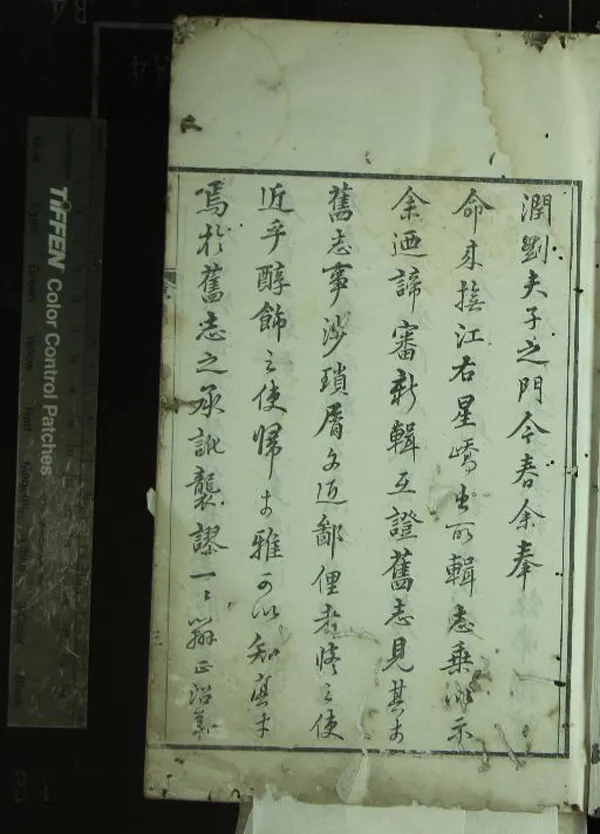 潤劉夫子之門今春余奉
命來撫江右星嶠出所輯志乘以示
余迺諦審新輯互證舊志見其于
舊志事涉瑣屑文近鄙俚者修之使
近乎醇飾之使歸于雅可以知于
焉於舊志之承訛襲謬一一辯正沿革
三
TIFFEN Color Control Patches